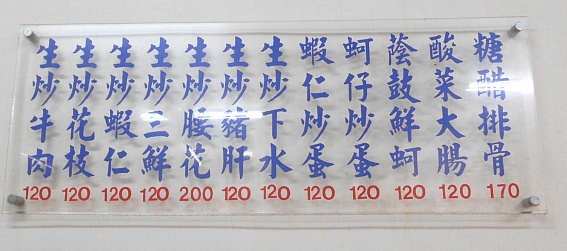 糖醋排骨 170
酸菜大腸 120
蔭鼓鮮蚵 120
蚵仔炒蛋 120
蝦仁炒蛋 120
生炒下水 120
生炒豬肝 120
生炒腰花 200
生炒三鮮 120
生炒蝦仁 120
生炒花枝 120
生炒牛肉 120